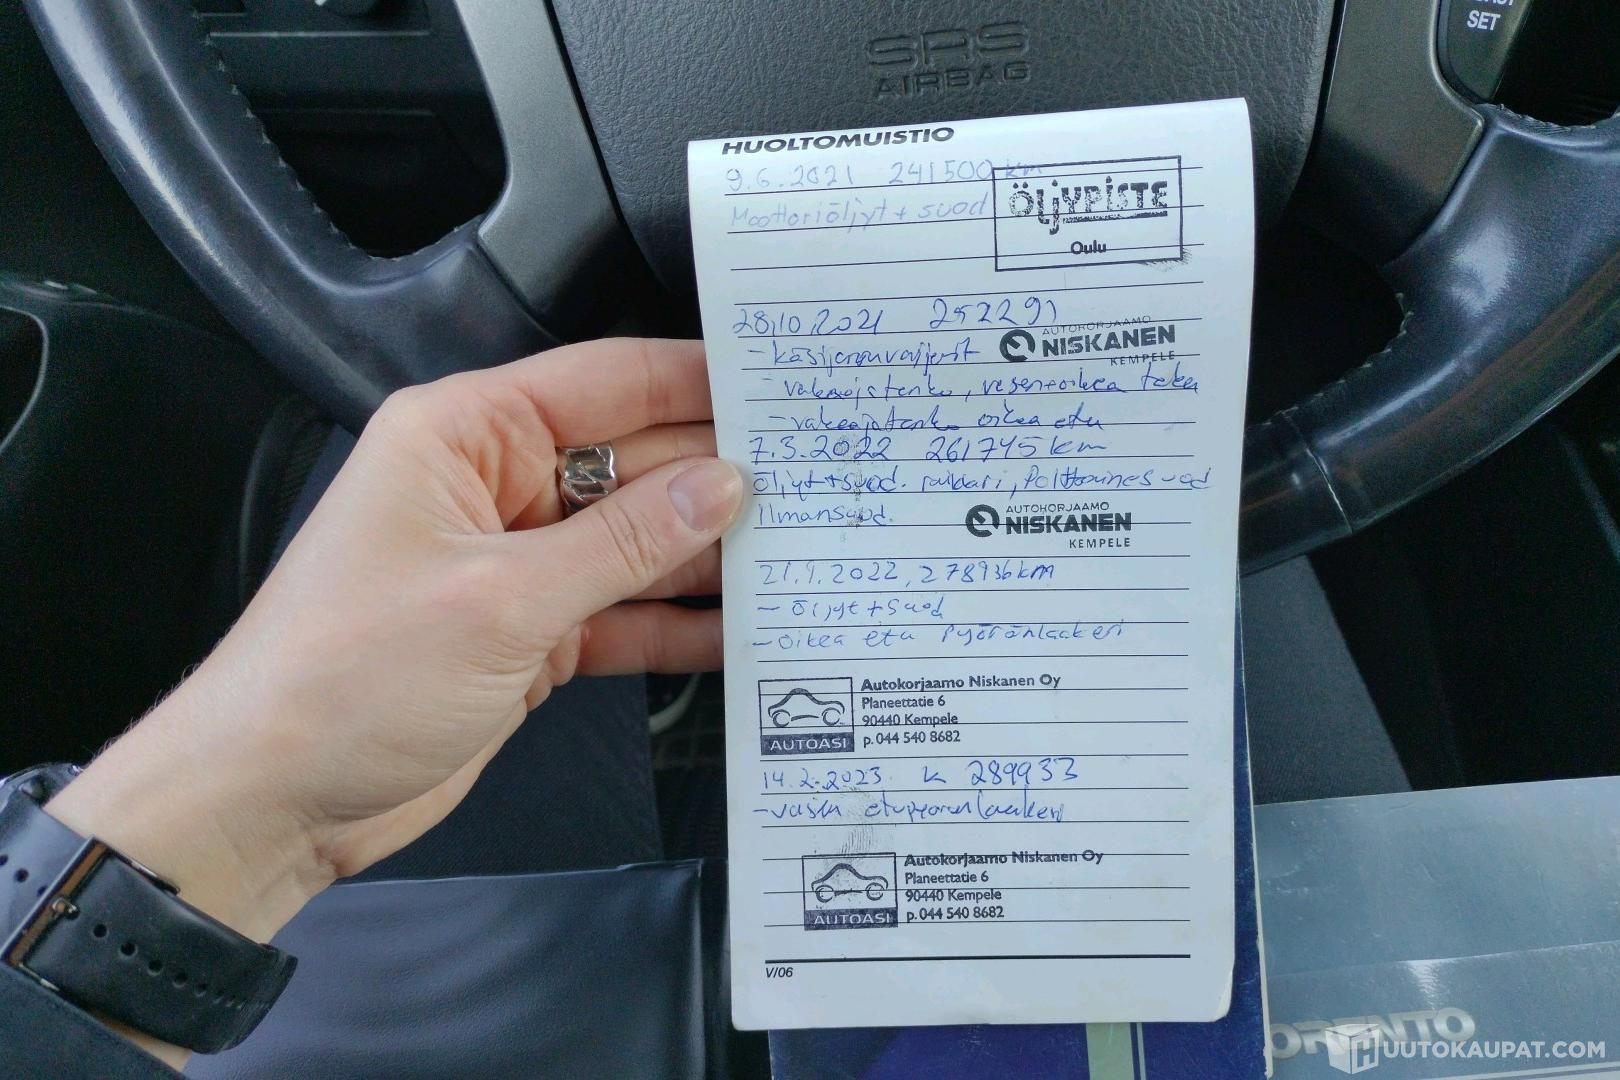 SET
SRS
AIRBAG
HUOLTOMUISTIO
9.6.2021 241500 km
Moottoriöljyt + suod
ÖljYPISTE
Oulu
28.10.2021 252291
AUTOKORJAAMO
NISKANEN
KEMPELE
- käsijarruvaijerit
- vakaajatanko, vasen+oikea taka
- vakaajatanko oikea etu
7.3.2022 261745 km
öljyt+suod. raikkari, Polttoainesuod
Ilmansuod.
AUTOKORJAAMO
NISKANEN
KEMPELE
21.9.2022, 278936km
- öljyt + suod
- oikea etu Pyöränlaakeri
AUTOASI
Autokorjaamo Niskanen Oy
Planeettatie 6
90440 Kempele
p. 044 540 8682
14.2.2023 289933
- vasen etupyöränlaakeri
AUTOASI
Autokorjaamo Niskanen Oy
Planeettatie 6
90440 Kempele
p. 044 540 8682
V/06
ORENTO
HUUTOKAUPAT.COM